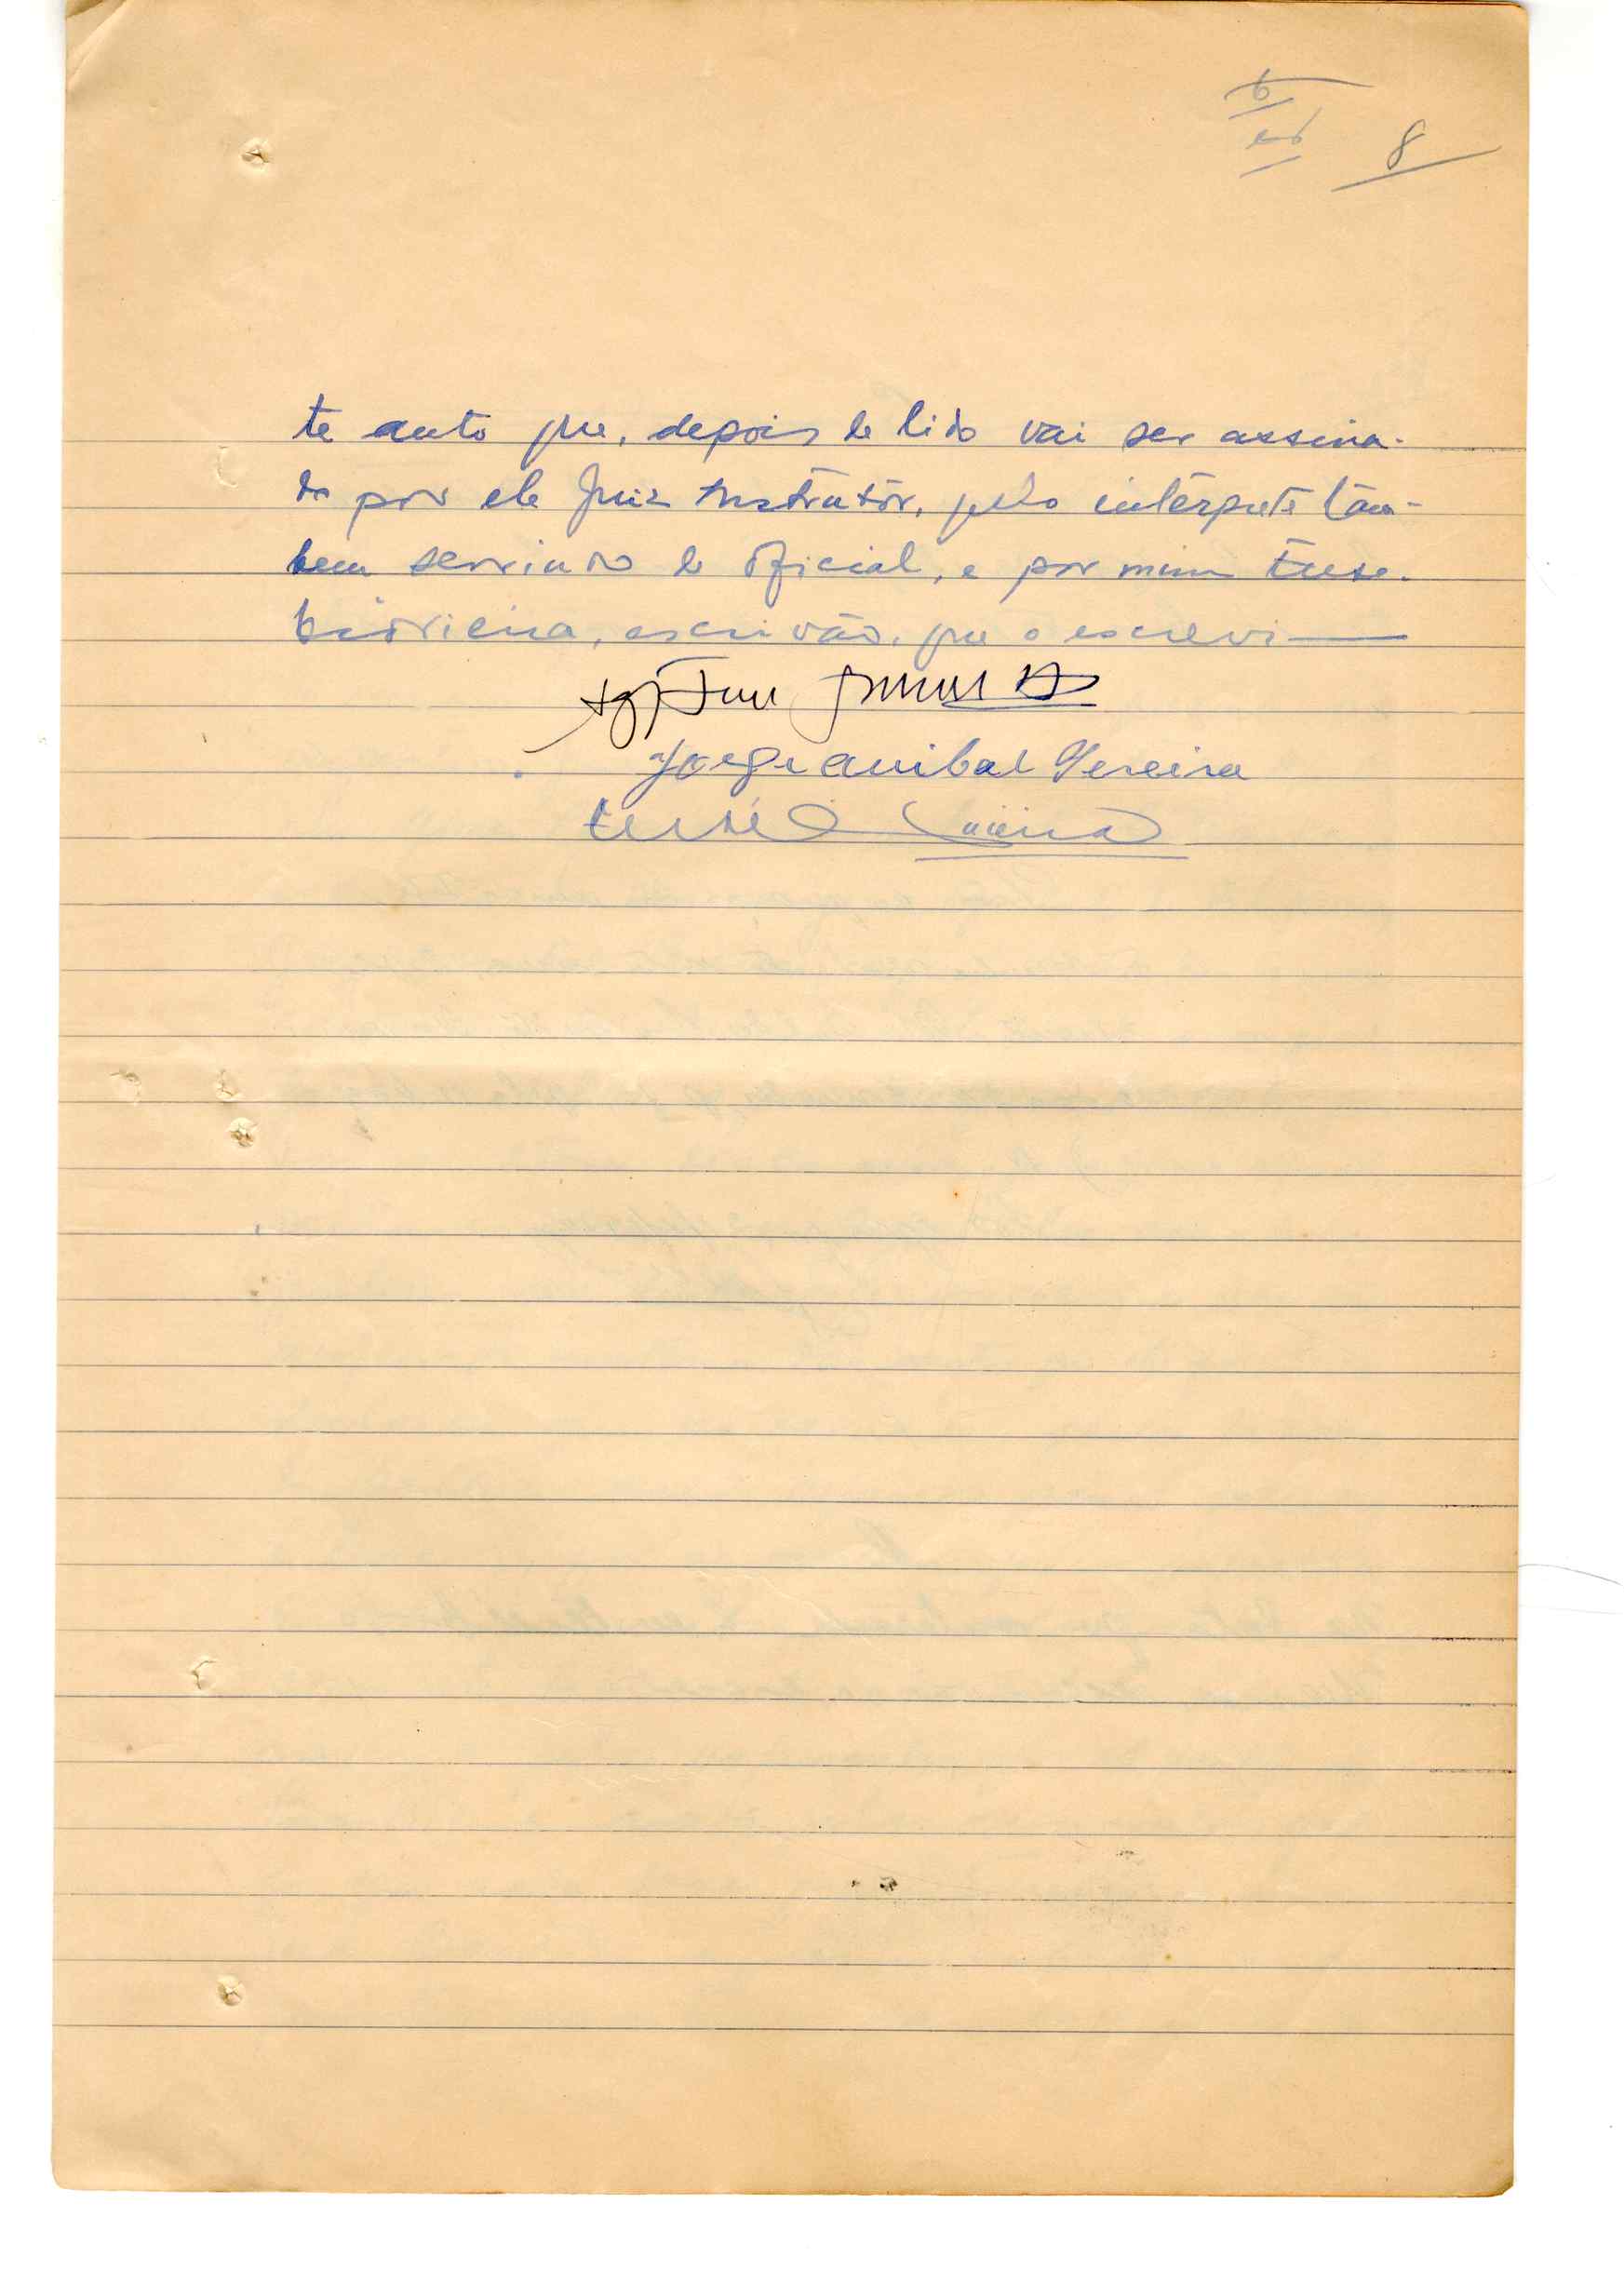 8
te auto que, depois de lido vai ser assina-
do por ele Juiz Instrutôr, pelo intérprete tam-
bem servindo de oficial, e por mim Euse-
bio Vieira, escrivão, que o escrevi
Jorge Anibal Pereira